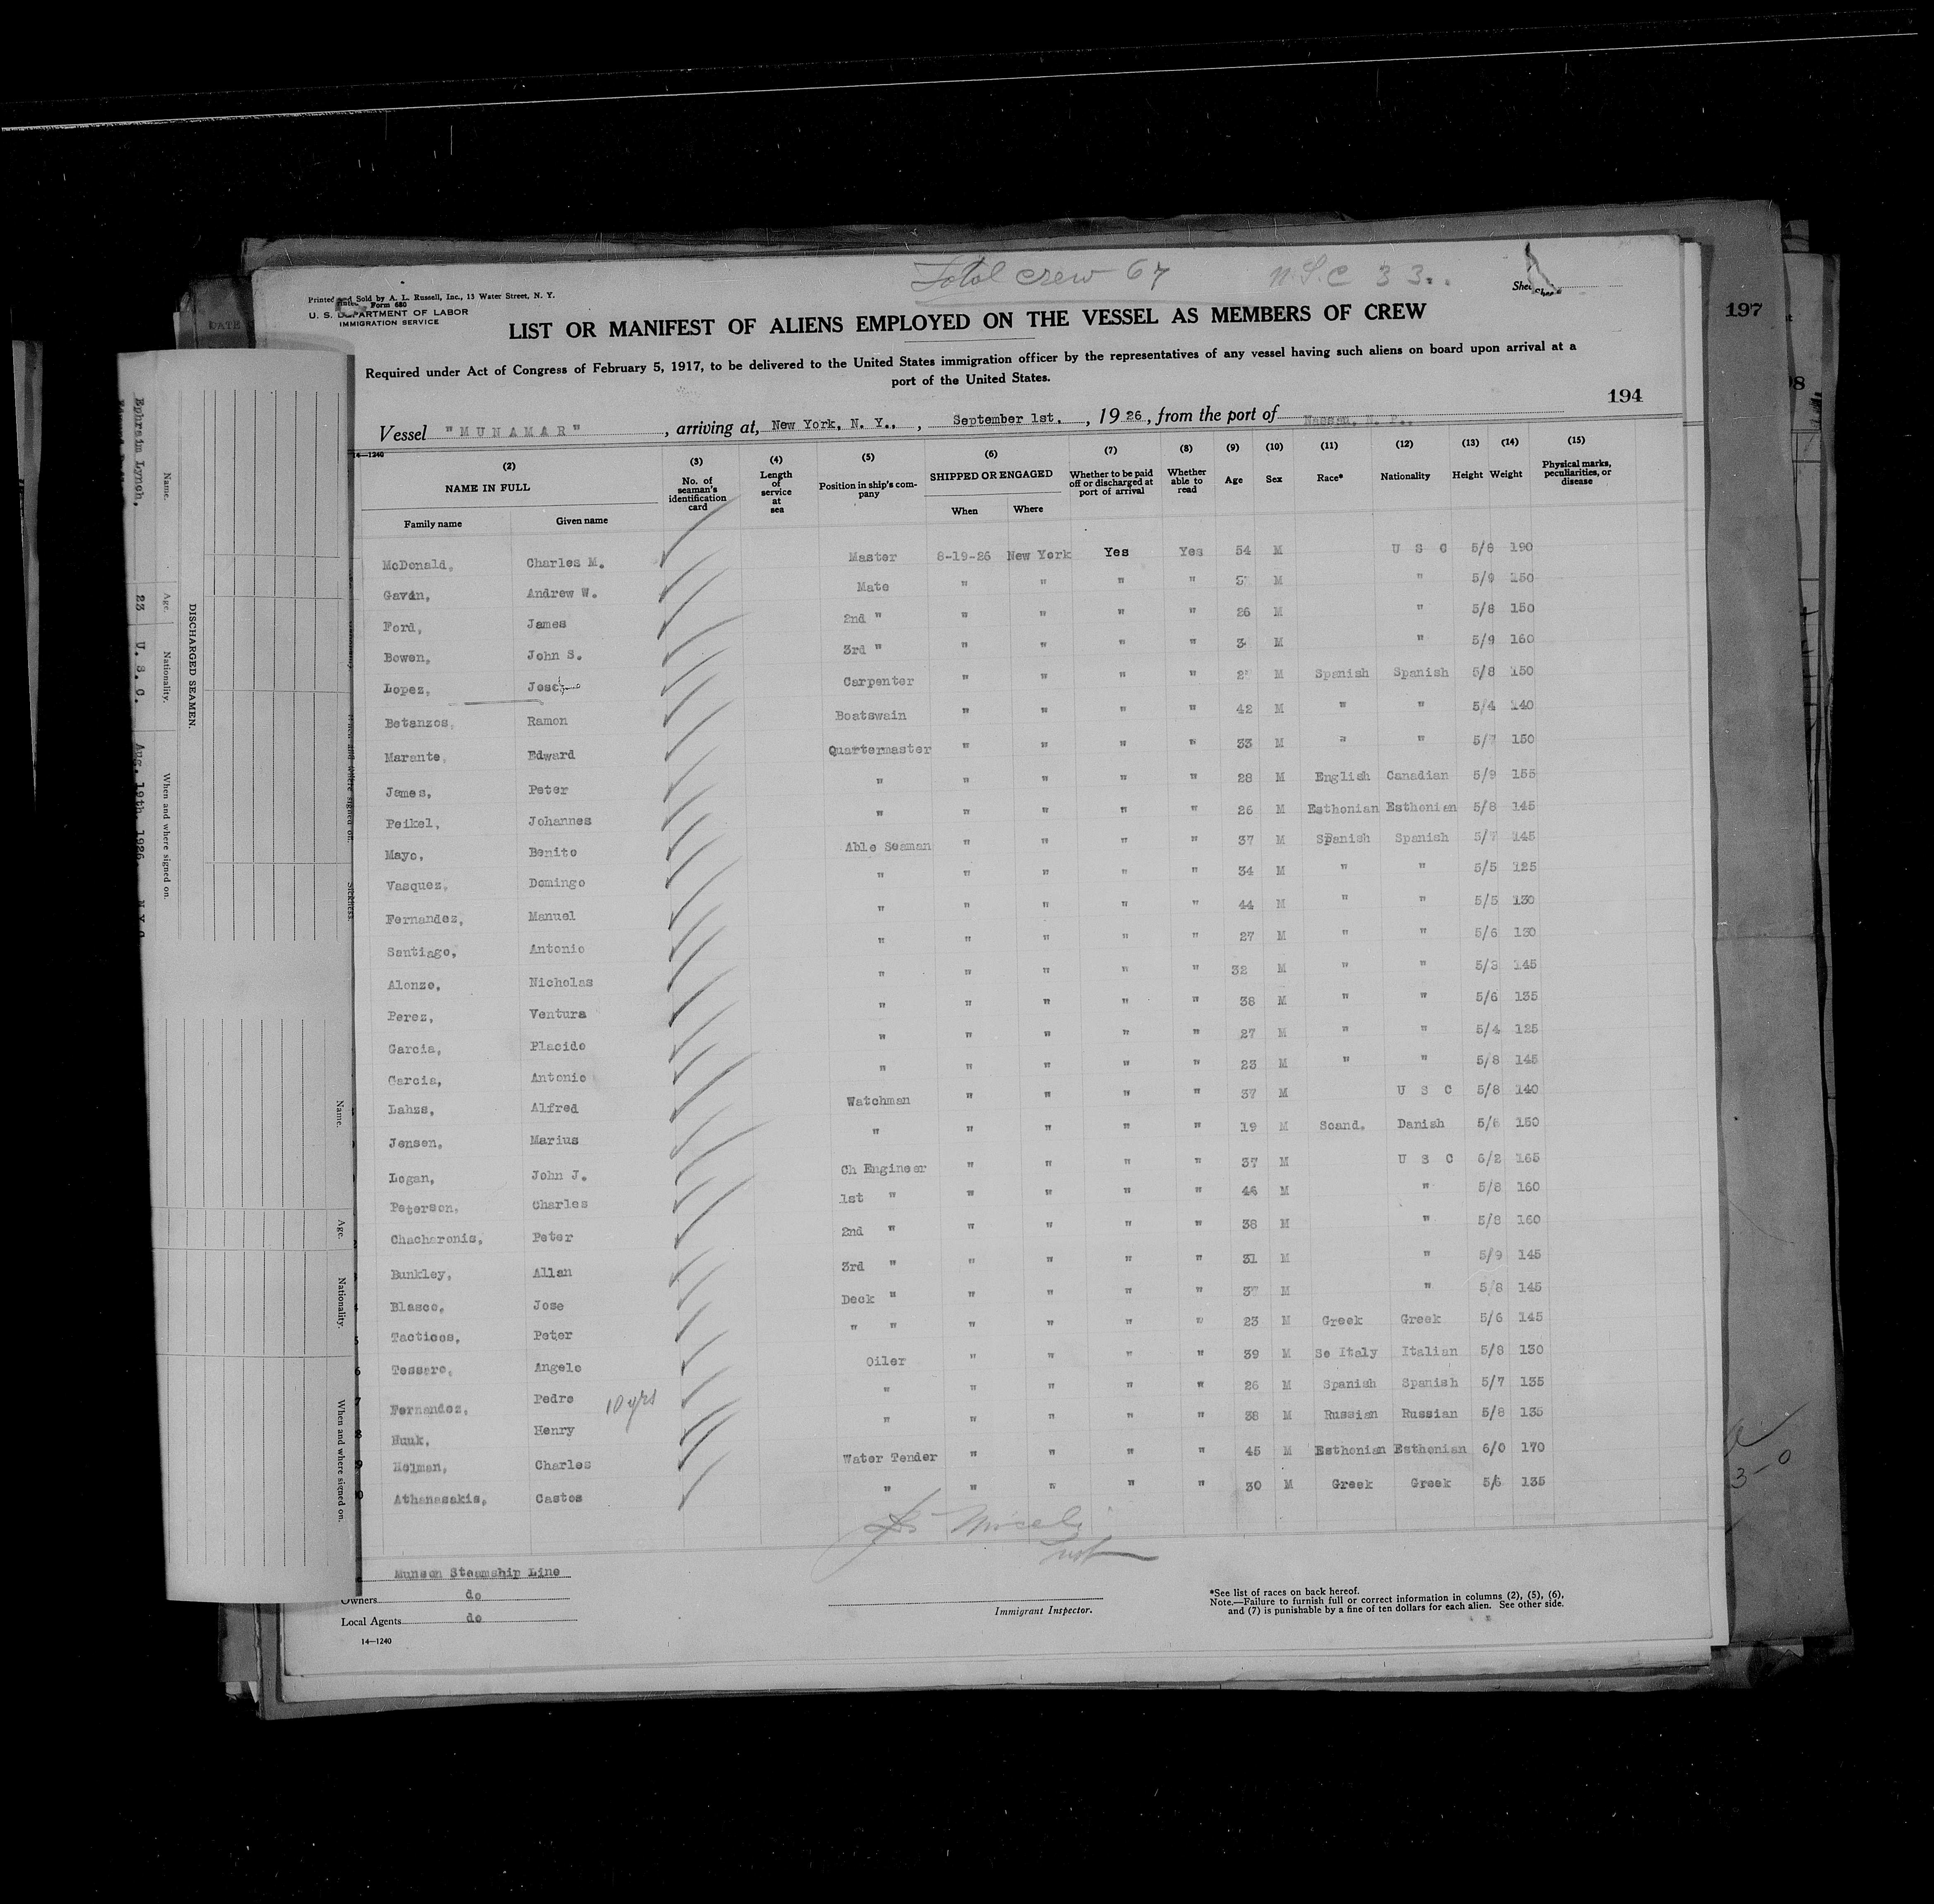 Total crew 67 N.S.C 33
Printed and Sold by A. L. Russell, Inc., 13 Water Street, N. Y.
Form 680
U. S. DEPARTMENT OF LABOR
IMMIGRATION SERVICE
LIST OR MANIFEST OF ALIENS EMPLOYED ON THE VESSEL AS MEMBERS OF CREW
Required under Act of Congress of February 5, 1917, to be delivered to the United States immigration officer by the representatives of any vessel having such aliens on board upon arrival at a
port of the United States.
197
194
Vessel "MUNAMAR", arriving at, New York, N. Y., , September 1st, , 1926, from the port of Nassau, N. P.,
14—1240
(2) (3) (4) (5) (6) (7) (8) (9) (10) (11) (12) (13) (14) (15)
NAME IN FULL No. of seaman's identification card Length of service at sea Position in ship's company SHIPPED OR ENGAGED Whether to be paid off or discharged at port of arrival Whether able to read Age Sex Race* Nationality Height Weight Physical marks, peculiarities, or disease
Family name Given name When Where
McDonald, Charles M. Master 8-19-26 New York Yes Yes 54 M U S C 5/8 190
Gavin, Andrew W. Mate " " " " M " 5/9 150
Ford, James 2nd " " " " " 26 M " 5/8 150
Bowen, John S. 3rd " " " " " M " 5/9 160
Lopez, Jose Carpenter " " " " M Spanish Spanish 5/8 150
Betanzos, Ramon Boatswain " " " " 42 M " " 5/4 140
Marante, Edward Quartermaster " " " " 33 M " " 5/7 150
James, Peter " " " " " 28 M English Canadian 5/9 155
Peikel, Johannes " " " " " 26 M Esthonian Esthonian 5/8 145
Mayo, Benito Able Seaman " " " " 37 M Spanish Spanish 5/7 145
Vasquez, Domingo " " " " " 34 M " " 5/5 125
Fernandez, Manuel " " " " " 44 M " " 5/5 130
Santiago, Antonio " " " " " 27 M " " 5/6 130
Alonzo, Nicholas " " " " " 32 M " " 145
Perez, Ventura " " " " " 38 M " " 5/6 135
Garcia, Placido " " " " " 27 M " " 5/4 125
Garcia, Antonio " " " " " 23 M " " 5/8 145
Lahzs, Alfred Watchman " " " " 37 M U S C 5/8 140
Jensen, Marius " " " " " 19 M Scand. Danish 5/6 150
Logan, John J. Ch Engineer " " " " 37 M U S C 6/2 165
Peterson, Charles 1st " " " " " 46 M " 5/8 160
Chacharonis, Peter 2nd " " " " " 38 M " 5/8 160
Bunkley, Allan 3rd " " " " " 31 M " 5/9 145
Blasco, Jose Deck " " " " " 37 M " 5/8 145
Tacticos, Peter " " " " " " 23 M Greek Greek 5/6 145
Tessaro, Angelo Oiler " " " " 39 M So Italy Italian 5/8 130
Fernandez, Pedro 10 yrs " " " " " 26 M Spanish Spanish 5/7 135
Hunk, Henry " " " " " 38 M Russian Russian 5/8 135
Holman, Charles Water Tender " " " " 45 M Esthonian Esthonian 6/0 170
Athanasakis, Castos " " " " " 30 M Greek Greek 5/6 135
Munson Steamship Line
Owners do
Local Agents do
14—1240
Immigrant Inspector.
*See list of races on back hereof.
Note.—Failure to furnish full or correct information in columns (2), (5), (6),
and (7) is punishable by a fine of ten dollars for each alien. See other side.
DISCHARGED SEAMEN.
Name. Age. Nationality. When and where signed on.
Ephraim Lynch, 23 U. S. C. Aug. 19th. 1926. N.Y.C
Name. Age. Nationality. When and where signed on.